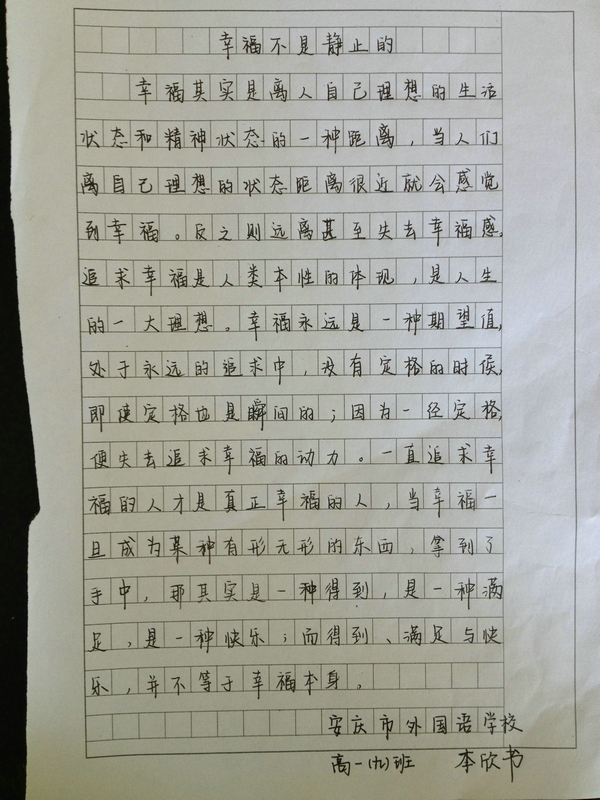 幸福不是静止的
幸福其实是离人自己理想的生活
状态和精神状态的一种距离，当人们
离自己理想的状态距离很近就会感觉
到幸福。反之则远离甚至失去幸福感，
追求幸福是人类本性的体现，是人生
的一大理想。幸福永远是一种期望值，
处于永远的追求中，没有定格的时候，
即使定格也是瞬间的；因为一经定格，
便失去追求幸福的动力。一直追求幸
福的人才是真正幸福的人，当幸福一
旦成为某种有形无形的东西，拿到了
手中，那其实是一种得到，是一种满
足，是一种快乐；而得到、满足与快
乐，并不等于幸福本身。
安庆市外国语学校
高一（九）班 李欣书